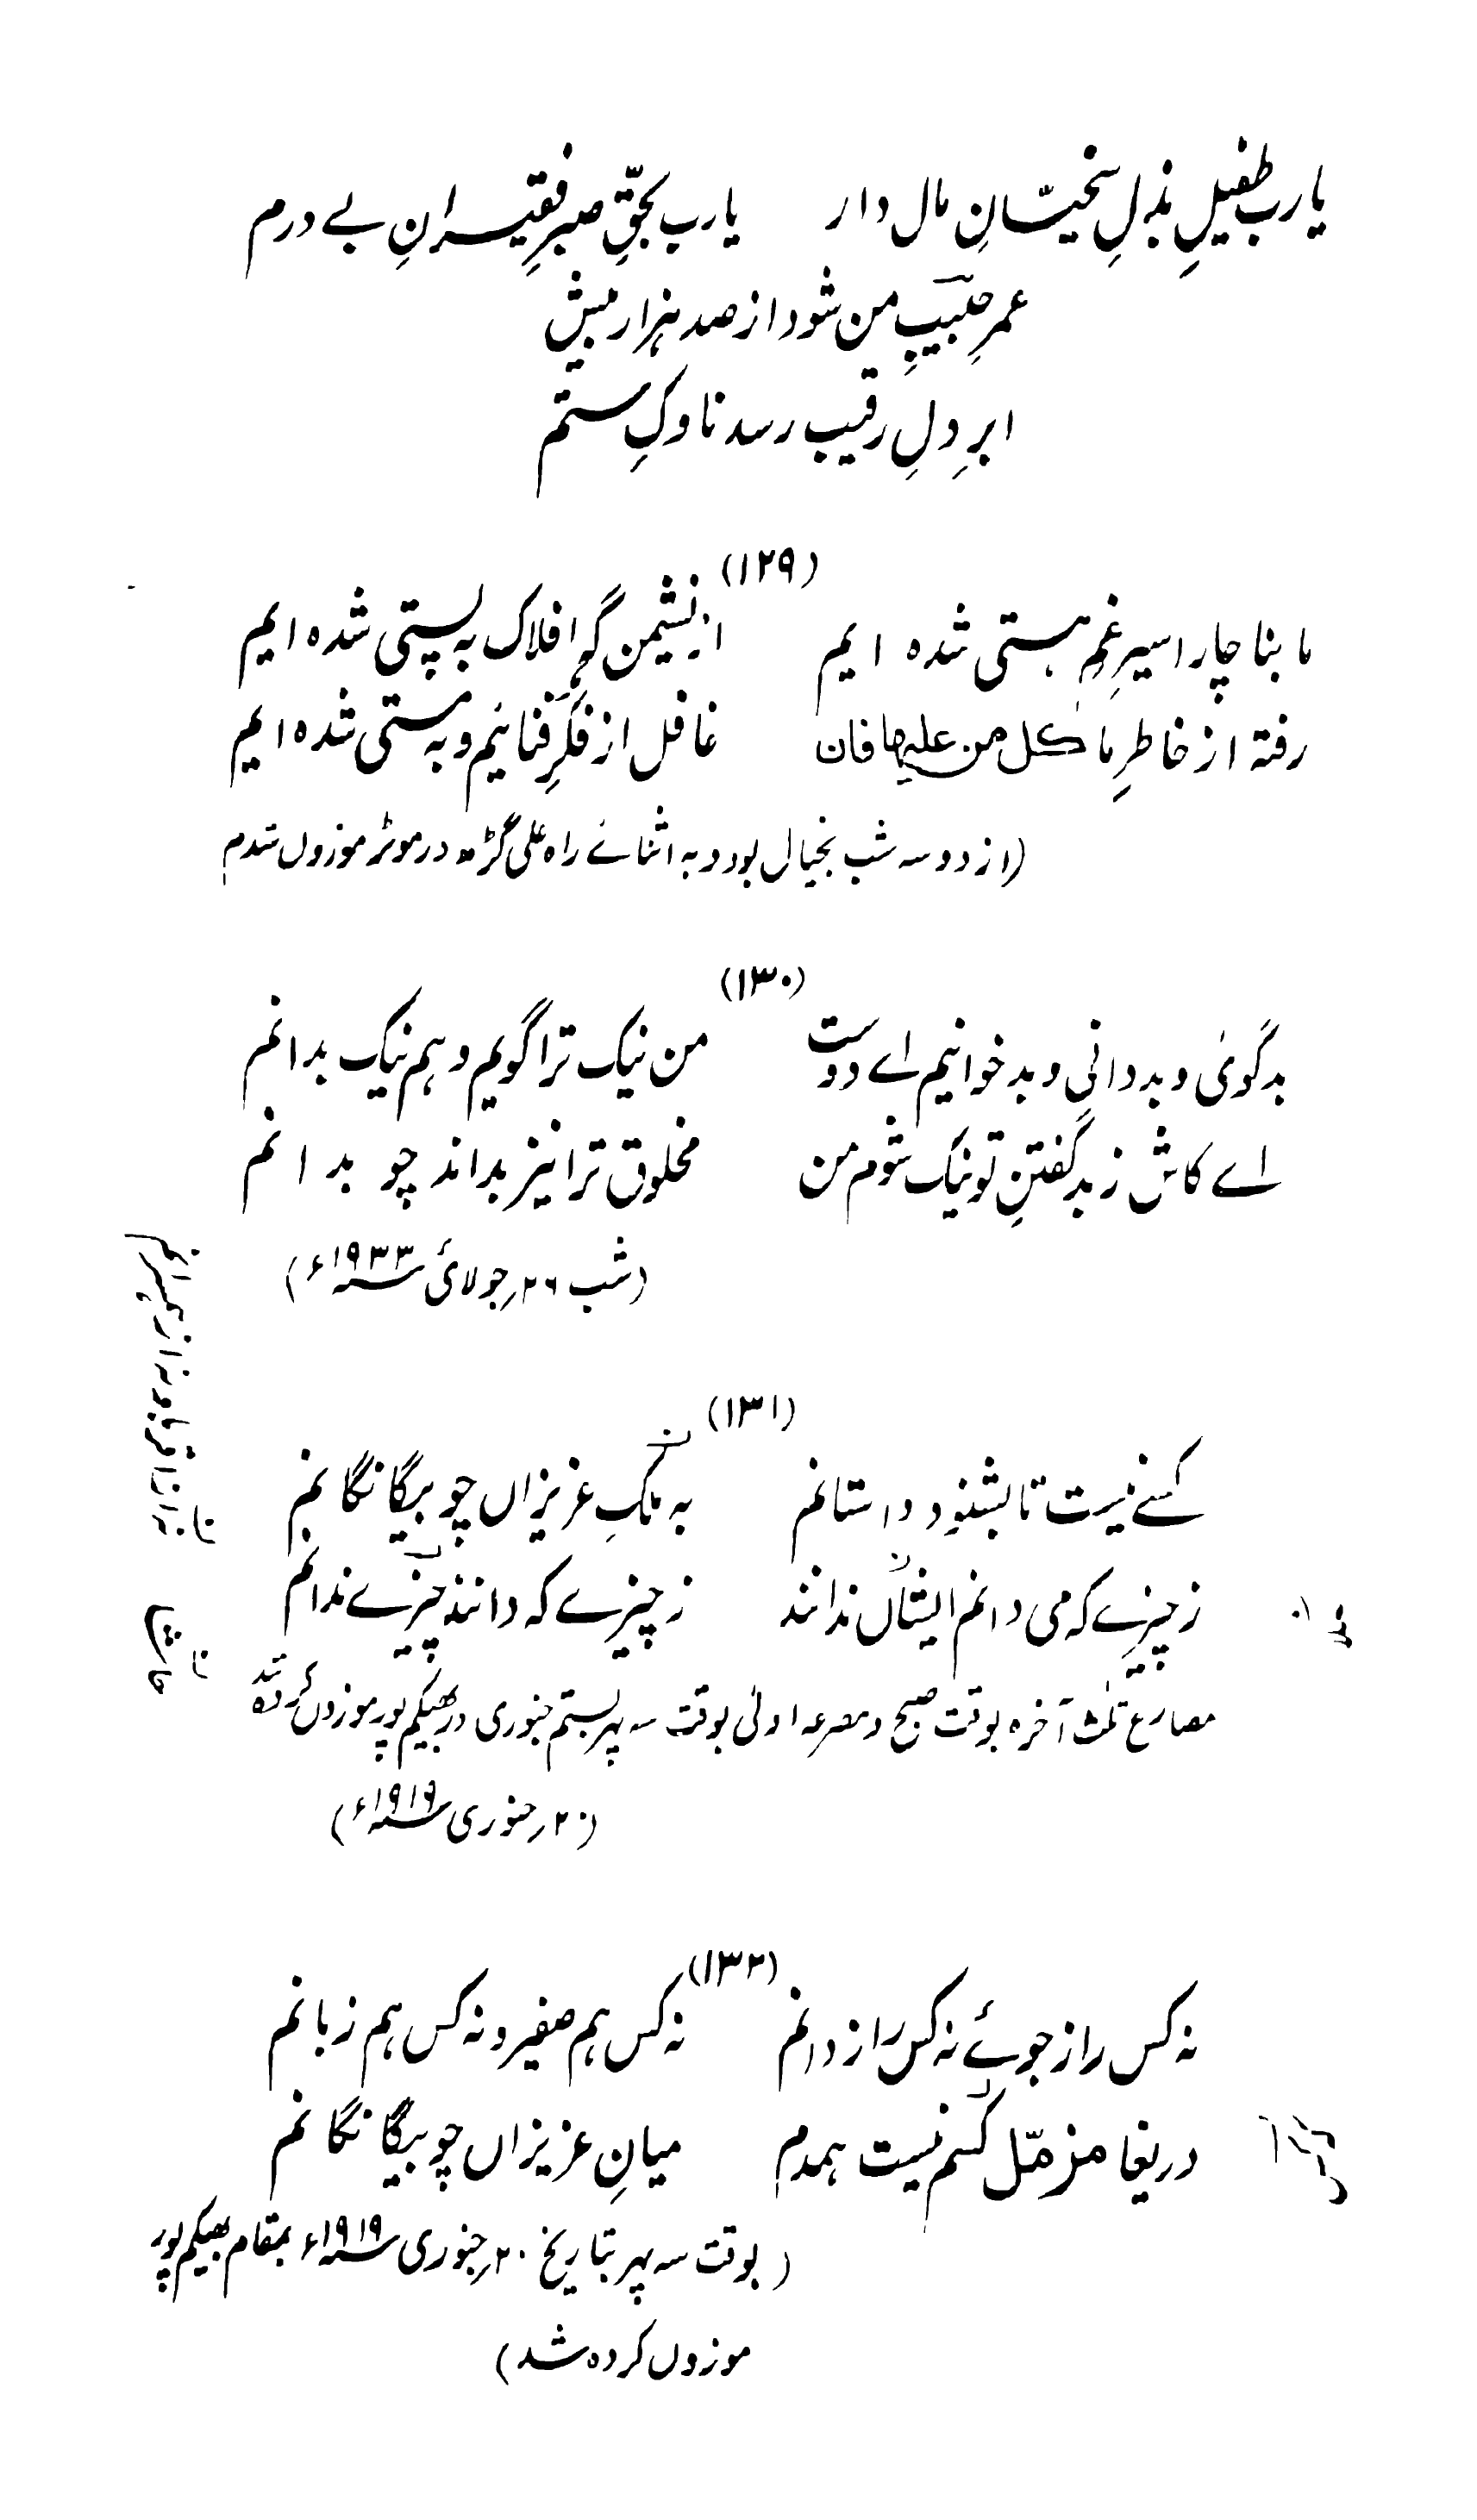 یارب طفیلِ بذلِ سخیّانِ مال دار یارب بحقِّ صبرِ فقیرانِ بے درم
عمرِ حبیبِ من شود از صد ہزار بیش
ابرِ دلِ رقیب رسد ناوکِ ستم
(۱۲۹)
ما بناچار اسیرِ غمِ ہستی شدہ ایم از نشیمن گہِ افلاک بہ پستی شدہ ایم
رفتہ از خاطرِ ما کل من علیہا فان غافل از فکرِ فنائیم و بہ مستی شدہ ایم
(از دو سہ شب بخیال بود و بہ اثنائے راہ علی گڑھ در موٹر موزوں شدم
(۱۳۰)
بد گوئی و بد دانی و بد خوانیم اے دوست من نیک ترا گویم و ہم نیک بدانم
اے کاش ز بد گفتنِ تو نیک شوم من مخلوق ترا نیز بداند چو بدانم
(شب ۲۶ رجولائی ۱۹۳۳ء)
(۱۳۱)
کسے نیست تا بشنود داستانم بہ نزدیکِ عزیزاں چو بیگانگانم
ز چیزے کہ می دانم ایشاں ندانند ز چیزے کہ دانند چیزے ندانم
مصارع ثلث آخرہ بوقت صبح و مصرعہ اولیٰ بوقت سہ پہر بستم جنوری در بھیکم پور موزوں کردہ شد
(۲۰ رجنوری ۱۹۱۹ء)
(۱۳۲)
نہ کس راز جوئے نہ کس رازدانم نہ کس ہم صفیر و نہ کس ہم زبانم
دریغا مزمّل کسم نیست ہمدم میانِ عزیزاں چو بیگانگانم
(بوقت سہ پہر بتاریخ ۲۰ رجنوری ۱۹۱۹ء بمقام بھیکم پور
موزوں کردہ شد)